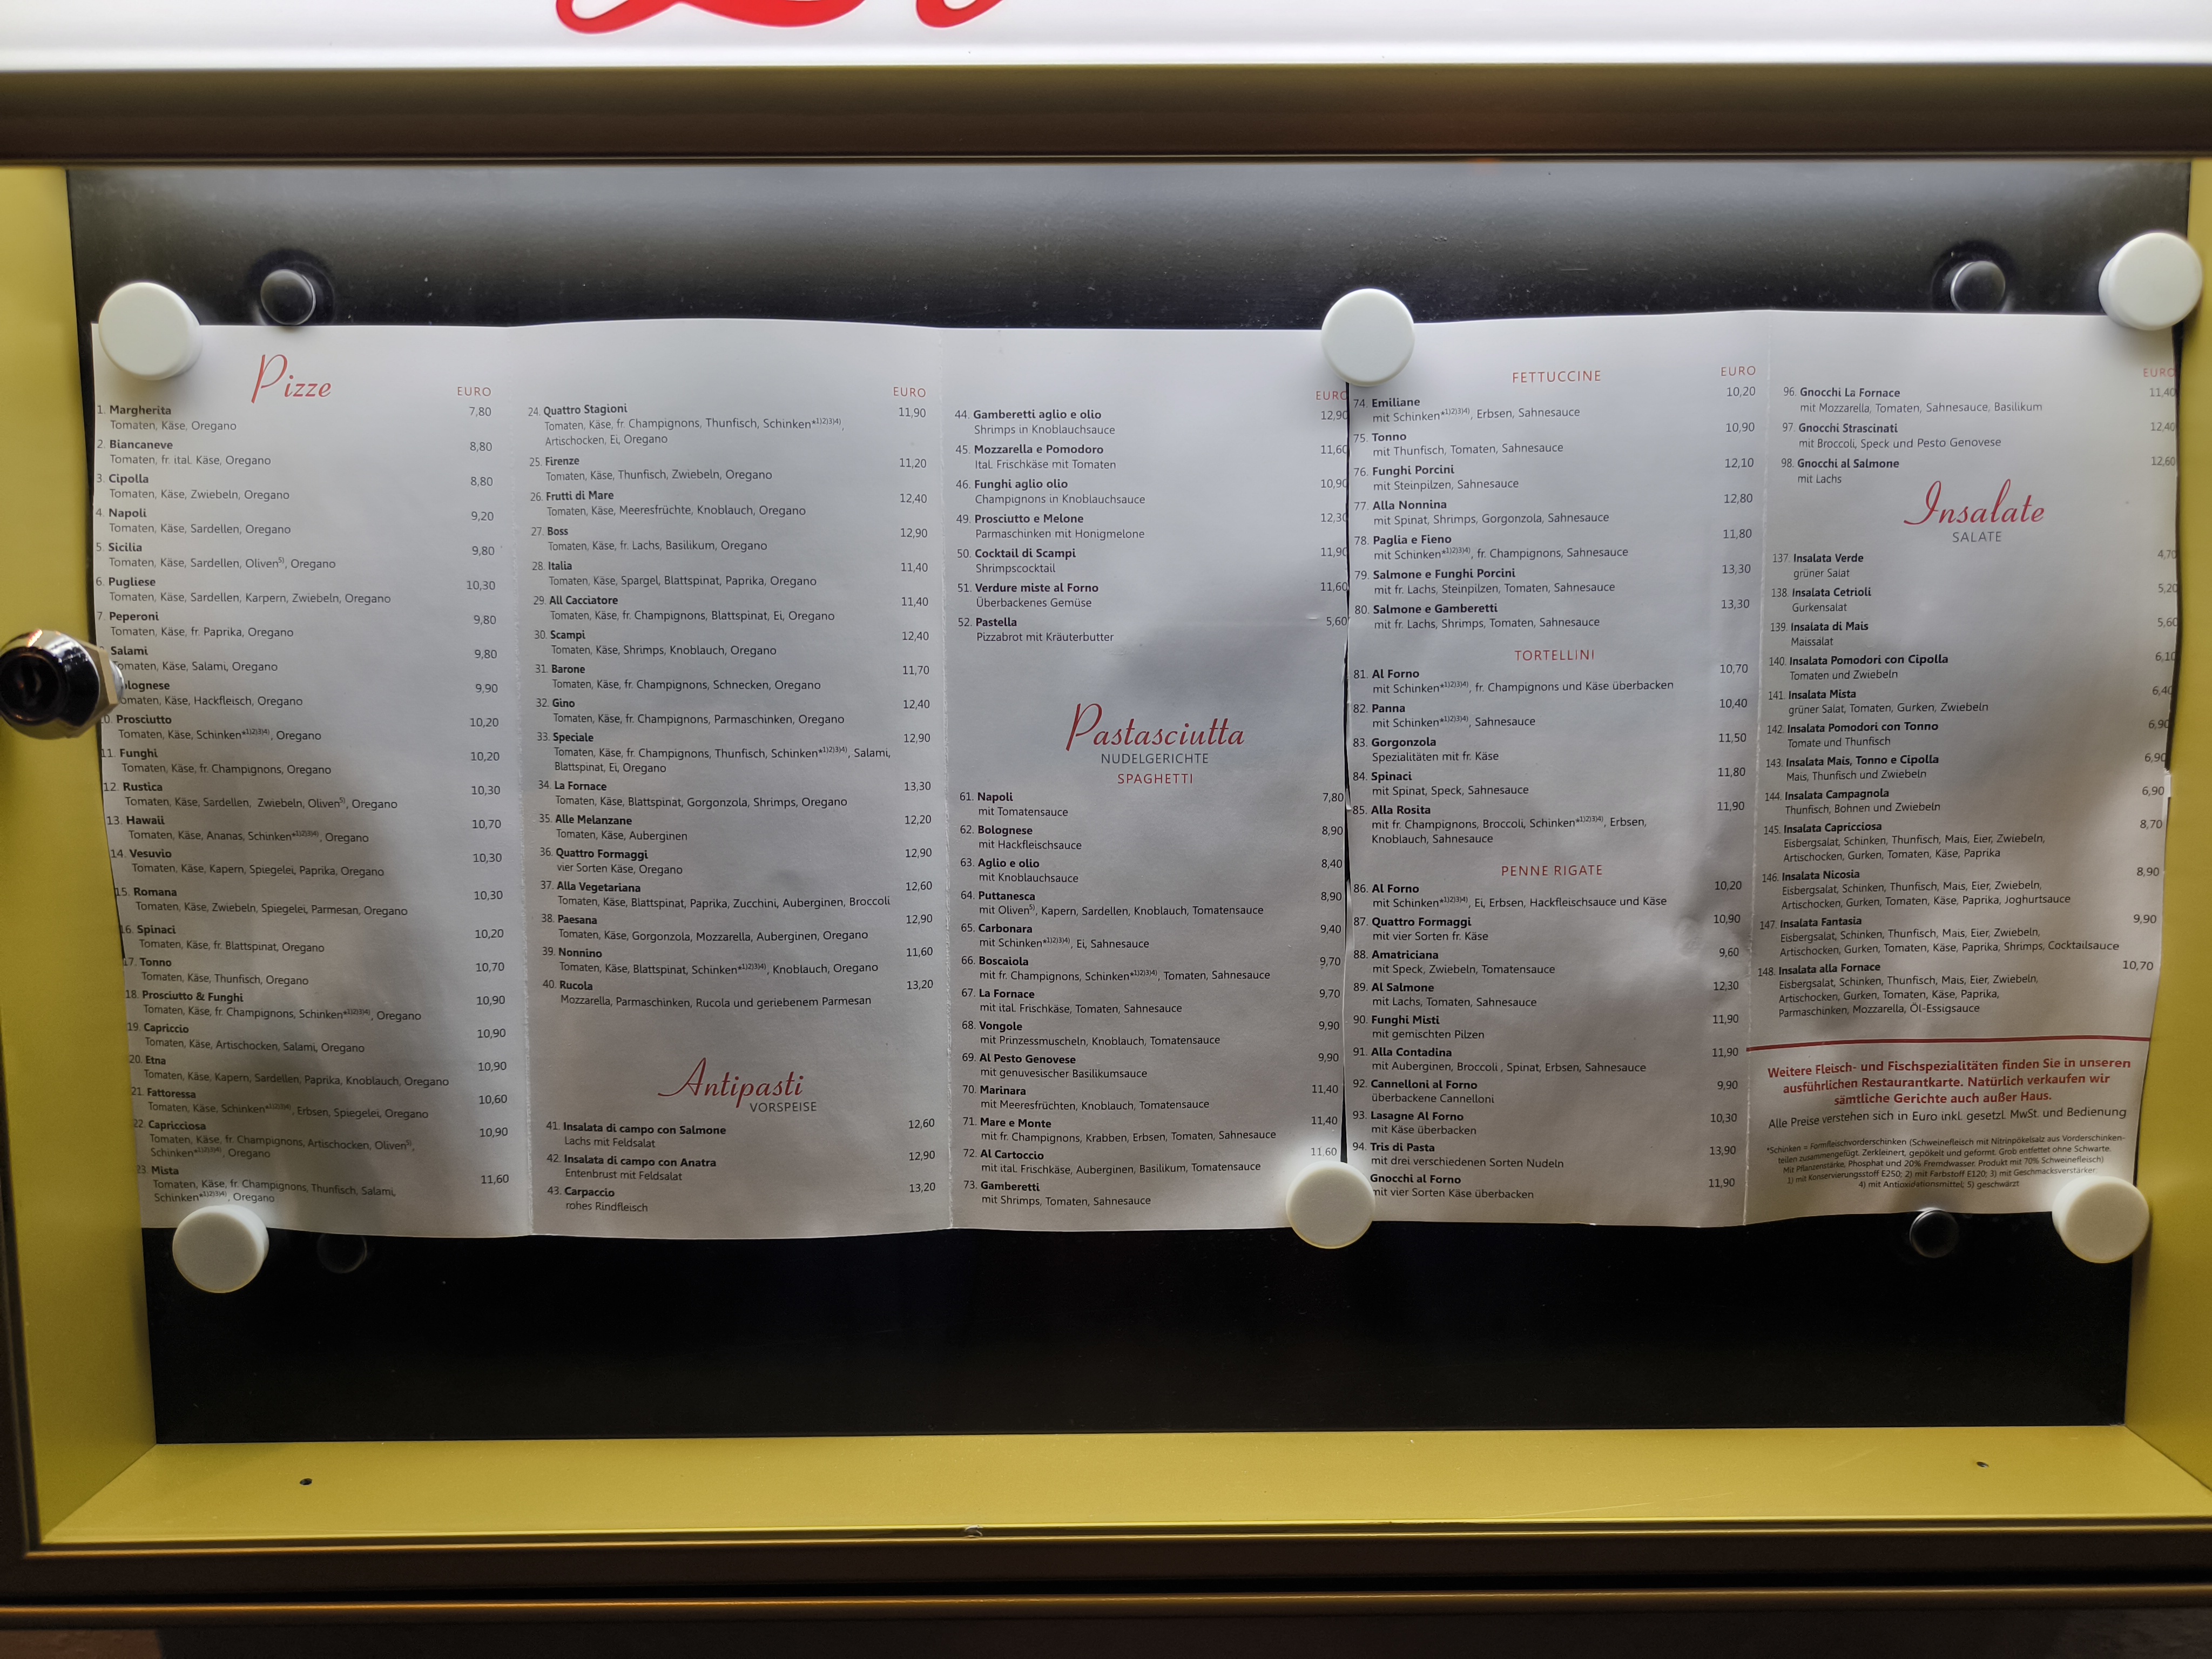 Pizze
EURO
1. Margherita 7,80
Tomaten, Käse, Oregano
2. Biancaneve 8,80
Tomaten, fr. ital. Käse, Oregano
3. Cipolla 8,80
Tomaten, Käse, Zwiebeln, Oregano
4. Napoli 9,20
Tomaten, Käse, Sardellen, Oregano
5. Sicilia 9,80
Tomaten, Käse, Sardellen, Oliven5), Oregano
6. Pugliese 10,30
Tomaten, Käse, Sardellen, Karpern, Zwiebeln, Oregano
7. Peperoni 9,80
Tomaten, Käse, fr. Paprika, Oregano
Salami 9,80
Tomaten, Käse, Salami, Oregano
lognese 9,90
omaten, Käse, Hackfleisch, Oregano
0. Prosciutto 10,20
Tomaten, Käse, Schinken*1)2)3)4), Oregano
11. Funghi 10,20
Tomaten, Käse, fr. Champignons, Oregano
12. Rustica 10,30
Tomaten, Käse, Sardellen, Zwiebeln, Oliven5), Oregano
13. Hawaii 10,70
Tomaten, Käse, Ananas, Schinken*1)2)3)4), Oregano
14. Vesuvio 10,30
Tomaten, Käse, Kapern, Spiegelei, Paprika, Oregano
15. Romana 10,30
Tomaten, Käse, Zwiebeln, Spiegelei, Parmesan, Oregano
16. Spinaci 10,20
Tomaten, Käse, fr. Blattspinat, Oregano
17. Tonno 10,70
Tomaten, Käse, Thunfisch, Oregano
18. Prosciutto & Funghi 10,90
Tomaten, Käse, fr. Champignons, Schinken*1)2)3)4), Oregano
19. Capriccio 10,90
Tomaten, Käse, Artischocken, Salami, Oregano
20. Etna 10,90
Tomaten, Käse, Kapern, Sardellen, Paprika, Knoblauch, Oregano
21. Fattoressa 10,60
Tomaten, Käse, Schinken*1)2)3)4), Erbsen, Spiegelei, Oregano
22. Capricciosa 10,90
Tomaten, Käse, fr. Champignons, Artischocken, Oliven5),
Schinken*1)2)3)4), Oregano
23. Mista 11,60
Tomaten, Käse, fr. Champignons, Thunfisch, Salami,
Schinken*1)2)3)4), Oregano
EURO
24. Quattro Stagioni 11,90
Tomaten, Käse, fr. Champignons, Thunfisch, Schinken*1)2)3)4),
Artischocken, Ei, Oregano
25. Firenze 11,20
Tomaten, Käse, Thunfisch, Zwiebeln, Oregano
26. Frutti di Mare 12,40
Tomaten, Käse, Meeresfrüchte, Knoblauch, Oregano
27. Boss 12,90
Tomaten, Käse, fr. Lachs, Basilikum, Oregano
28. Italia 11,40
Tomaten, Käse, Spargel, Blattspinat, Paprika, Oregano
29. All Cacciatore 11,40
Tomaten, Käse, fr. Champignons, Blattspinat, Ei, Oregano
30. Scampi 12,40
Tomaten, Käse, Shrimps, Knoblauch, Oregano
31. Barone 11,70
Tomaten, Käse, fr. Champignons, Schnecken, Oregano
32. Gino 12,40
Tomaten, Käse, fr. Champignons, Parmaschinken, Oregano
33. Speciale 12,90
Tomaten, Käse, fr. Champignons, Thunfisch, Schinken*1)2)3)4), Salami,
Blattspinat, Ei, Oregano
34. La Fornace 13,30
Tomaten, Käse, Blattspinat, Gorgonzola, Shrimps, Oregano
35. Alle Melanzane 12,20
Tomaten, Käse, Auberginen
36. Quattro Formaggi 12,90
vier Sorten Käse, Oregano
37. Alla Vegetariana 12,60
Tomaten, Käse, Blattspinat, Paprika, Zucchini, Auberginen, Broccoli
38. Paesana 12,90
Tomaten, Käse, Gorgonzola, Mozzarella, Auberginen, Oregano
39. Nonnino 11,60
Tomaten, Käse, Blattspinat, Schinken*1)2)3)4), Knoblauch, Oregano
40. Rucola 13,20
Mozzarella, Parmaschinken, Rucola und geriebenem Parmesan
Antipasti
VORSPEISE
41. Insalata di campo con Salmone 12,60
Lachs mit Feldsalat
42. Insalata di campo con Anatra 12,90
Entenbrust mit Feldsalat
43. Carpaccio 13,20
rohes Rindfleisch
EURO
44. Gamberetti aglio e olio 12,90
Shrimps in Knoblauchsauce
45. Mozzarella e Pomodoro 11,60
Ital. Frischkäse mit Tomaten
46. Funghi aglio olio 10,90
Champignons in Knoblauchsauce
49. Prosciutto e Melone 12,30
Parmaschinken mit Honigmelone
50. Cocktail di Scampi 11,90
Shrimpscocktail
51. Verdure miste al Forno 11,60
Überbackenes Gemüse
52. Pastella 5,60
Pizzabrot mit Kräuterbutter
Pastasciutta
NUDELGERICHTE
SPAGHETTI
61. Napoli 7,80
mit Tomatensauce
62. Bolognese 8,90
mit Hackfleischsauce
63. Aglio e olio 8,40
mit Knoblauchsauce
64. Puttanesca 8,90
mit Oliven5), Kapern, Sardellen, Knoblauch, Tomatensauce
65. Carbonara 9,40
mit Schinken*1)2)3)4), Ei, Sahnesauce
66. Boscaiola 9,70
mit fr. Champignons, Schinken*1)2)3)4), Tomaten, Sahnesauce
67. La Fornace 9,70
mit ital. Frischkäse, Tomaten, Sahnesauce
68. Vongole 9,90
mit Prinzessmuscheln, Knoblauch, Tomatensauce
69. Al Pesto Genovese 9,90
mit genuvesischer Basilikumsauce
70. Marinara 11,40
mit Meeresfrüchten, Knoblauch, Tomatensauce
71. Mare e Monte 11,40
mit fr. Champignons, Krabben, Erbsen, Tomaten, Sahnesauce
72. Al Cartoccio 11,60
mit ital. Frischkäse, Auberginen, Basilikum, Tomatensauce
73. Gamberetti
mit Shrimps, Tomaten, Sahnesauce
FETTUCCINE
EURO
74. Emiliane 10,20
mit Schinken*1)2)3)4), Erbsen, Sahnesauce
75. Tonno 10,90
mit Thunfisch, Tomaten, Sahnesauce
76. Funghi Porcini 12,10
mit Steinpilzen, Sahnesauce
77. Alla Nonnina 12,80
mit Spinat, Shrimps, Gorgonzola, Sahnesauce
78. Paglia e Fieno 11,80
mit Schinken*1)2)3)4), fr. Champignons, Sahnesauce
79. Salmone e Funghi Porcini 13,30
mit fr. Lachs, Steinpilzen, Tomaten, Sahnesauce
80. Salmone e Gamberetti 13,30
mit fr. Lachs, Shrimps, Tomaten, Sahnesauce
TORTELLINI
81. Al Forno 10,70
mit Schinken*1)2)3)4), fr. Champignons und Käse überbacken
82. Panna 10,40
mit Schinken*1)2)3)4), Sahnesauce
83. Gorgonzola 11,50
Spezialitäten mit fr. Käse
84. Spinaci 11,80
mit Spinat, Speck, Sahnesauce
85. Alla Rosita 11,90
mit fr. Champignons, Broccoli, Schinken*1)2)3)4), Erbsen,
Knoblauch, Sahnesauce
PENNE RIGATE
86. Al Forno 10,20
mit Schinken*1)2)3)4), Ei, Erbsen, Hackfleischsauce und Käse
87. Quattro Formaggi 10,90
mit vier Sorten fr. Käse
88. Amatriciana 9,60
mit Speck, Zwiebeln, Tomatensauce
89. Al Salmone 12,30
mit Lachs, Tomaten, Sahnesauce
90. Funghi Misti 11,90
mit gemischten Pilzen
91. Alla Contadina 11,90
mit Auberginen, Broccoli , Spinat, Erbsen, Sahnesauce
92. Cannelloni al Forno 9,90
überbackene Cannelloni
93. Lasagne Al Forno 10,30
mit Käse überbacken
94. Tris di Pasta 13,90
mit drei verschiedenen Sorten Nudeln
Gnocchi al Forno 11,90
mit vier Sorten Käse überbacken
EURO
96. Gnocchi La Fornace 11,40
mit Mozzarella, Tomaten, Sahnesauce, Basilikum
97. Gnocchi Strascinati 12,40
mit Broccoli, Speck und Pesto Genovese
98. Gnocchi al Salmone 12,60
mit Lachs
Insalate
SALATE
137. Insalata Verde 4,70
grüner Salat
138. Insalata Cetrioli 5,20
Gurkensalat
139. Insalata di Mais 5,60
Maissalat
140. Insalata Pomodori con Cipolla 6,10
Tomaten und Zwiebeln
141. Insalata Mista 6,40
grüner Salat, Tomaten, Gurken, Zwiebeln
142. Insalata Pomodori con Tonno 6,90
Tomate und Thunfisch
143. Insalata Mais, Tonno e Cipolla 6,90
Mais, Thunfisch und Zwiebeln
144. Insalata Campagnola 6,90
Thunfisch, Bohnen und Zwiebeln
145. Insalata Capricciosa 8,70
Eisbergsalat, Schinken, Thunfisch, Mais, Eier, Zwiebeln,
Artischocken, Gurken, Tomaten, Käse, Paprika
146. Insalata Nicosia 8,90
Eisbergsalat, Schinken, Thunfisch, Mais, Eier, Zwiebeln,
Artischocken, Gurken, Tomaten, Käse, Paprika, Joghurtsauce
147. Insalata Fantasia 9,90
Eisbergsalat, Schinken, Thunfisch, Mais, Eier, Zwiebeln,
Artischocken, Gurken, Tomaten, Käse, Paprika, Shrimps, Cocktailsauce
148. Insalata alla Fornace 10,70
Eisbergsalat, Schinken, Thunfisch, Mais, Eier, Zwiebeln,
Artischocken, Gurken, Tomaten, Käse, Paprika,
Parmaschinken, Mozzarella, Öl-Essigsauce
Weitere Fleisch- und Fischspezialitäten finden Sie in unseren
ausführlichen Restaurantkarte. Natürlich verkaufen wir
sämtliche Gerichte auch außer Haus.
Alle Preise verstehen sich in Euro inkl. gesetzl. MwSt. und Bedienung
*Schinken = Formfleischvorderschinken (Schweinefleisch mit Nitrinpökelsalz aus Vorderschinken-
teilen zusammengefügt. Zerkleinert, gepökelt und geformt. Grob entfettet ohne Schwarte.
Mit Pflanzenstärke, Phosphat und 20% Fremdwasser. Produkt mit 70% Schweinefleisch)
1) mit Konservierungsstoff E250; 2) mit Farbstoff E120; 3) mit Geschmacksverstärker;
4) mit Antioxidationsmittel; 5) geschwärzt